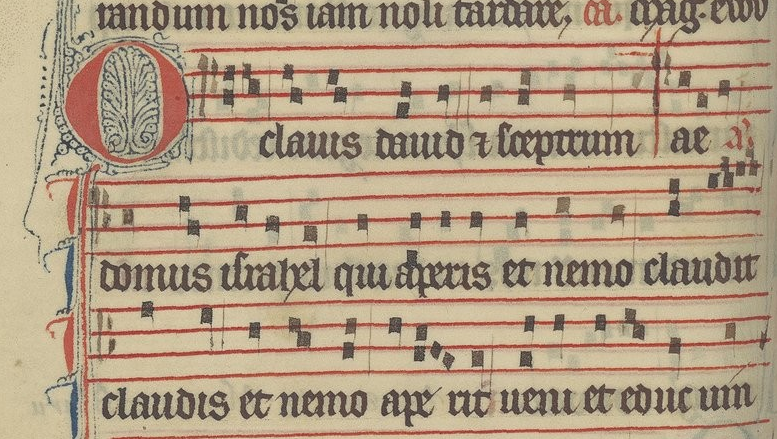 randum nos iam noli tardare. a. mag. evov
O clauis dauid ⁊ sceptrum ae a.
domus israhel qui aperis et nemo claudit
claudis et nemo ape rit ueni et educ uin